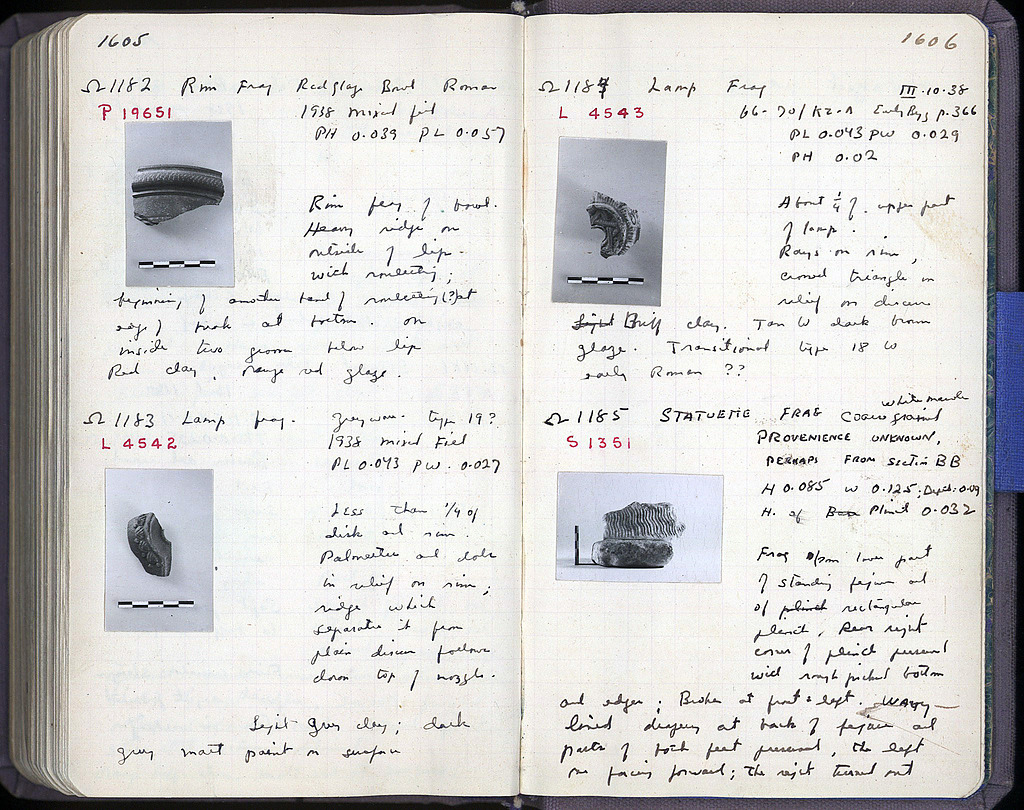 1605
Ω 1182 Rim Frag Redglaze Bowl Roman
P 19651 1938 mixed fill
PH 0.039 PL 0.057
Rim frag of bowl.
Heavy ridge on
outside of lip.
with rouletting;
beginning of another band of rouletting(?) at
edge of break at bottom. on
inside two grooves below lip
Red clay. orange red glaze.
Ω 1183 Lamp frag. greyware. type 19?
L 4542 1938 mixed Fill
PL 0.043 PW. 0.027
Less than 1/4 of
disk and rim.
Palmettes and dots
in relief on rim;
ridge which
separates it from
plain discus follows
down top of nozzle.
Light Grey clay; dark
grey matt paint on surface
1606
Ω 1184 Lamp Frag III.10.38
L 4543 66-70/KZ-A Early Byz p.366
PL 0.043 PW 0.029
PH 0.02
About 1/4 of upper part
of lamp.
Rays on rim,
crossed triangle in
relief on discus
Light Buff clay. Tan to dark brown
glaze. Transitional type 18 to
early Roman ??
white marble
Ω 1185 STATUETTE FRAG
S 1351 PROVENIENCE UNKNOWN,
PERHAPS FROM section BB
H 0.085 W 0.125; Depth: 0.09
H. of Plinth 0.032
Frag from lower part
of standing figure and
of plinth rectangular
plinth, Rear right
corner of plinth preserved
with rough picked bottom
and edges; Broken at front & left. Wavy-
lined drapery at back of figure and
parts of both feet preserved, the left
one facing forward; the right turned out